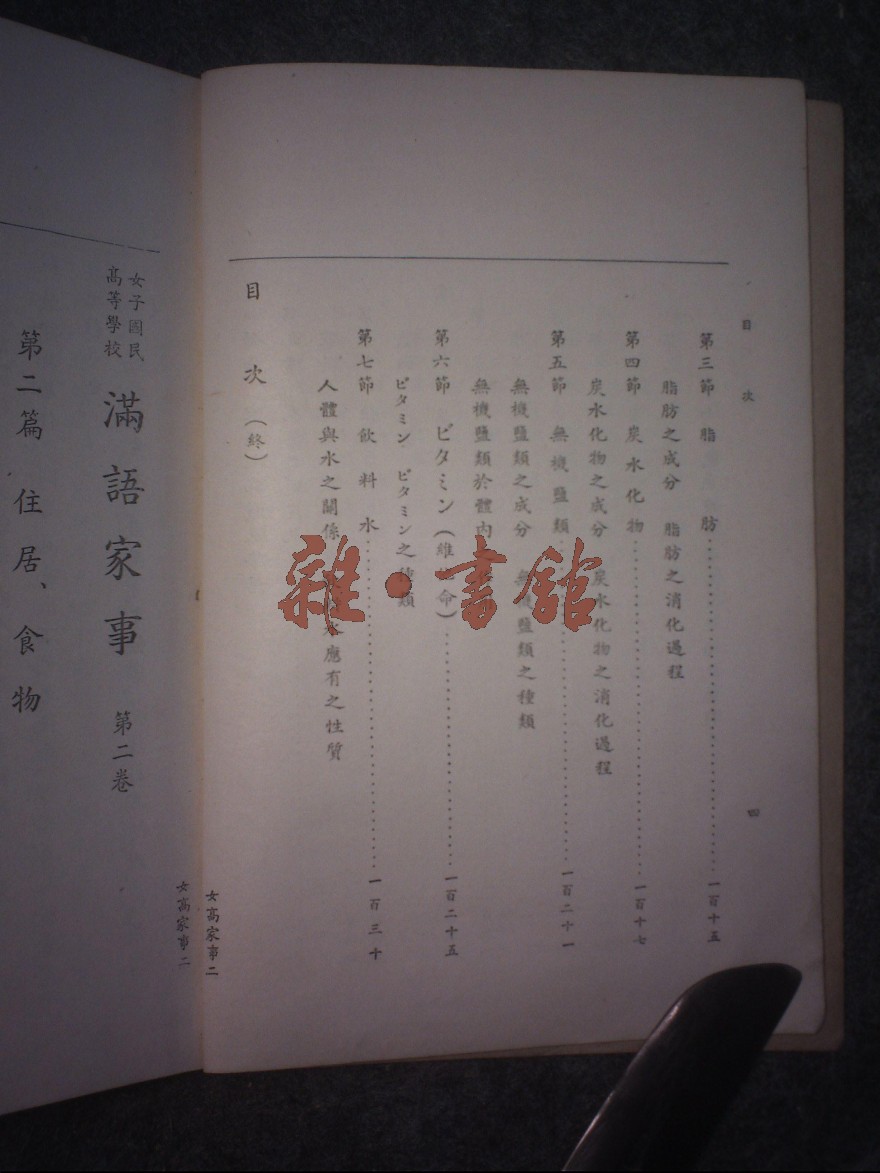 目次
四
第三節 脂肪……一百十五
脂肪之成分 脂肪之消化過程
第四節 炭水化物……一百十七
炭水化物之成分 炭水化物之消化過程
第五節 無機鹽類……一百二十一
無機鹽類之成分 無機鹽類之種類
無機鹽類於體內之
第六節 ビタミン(維 命)……一百二十五
ビタミン ビタミン之種類
第七節 飲料水……一百三十
人體與水之關係 水應有之性質
目次(終)
女高家事二
女高家事二
女子國民高等學校 滿語家事 第二卷
第二篇 住居、食物
雜·書館